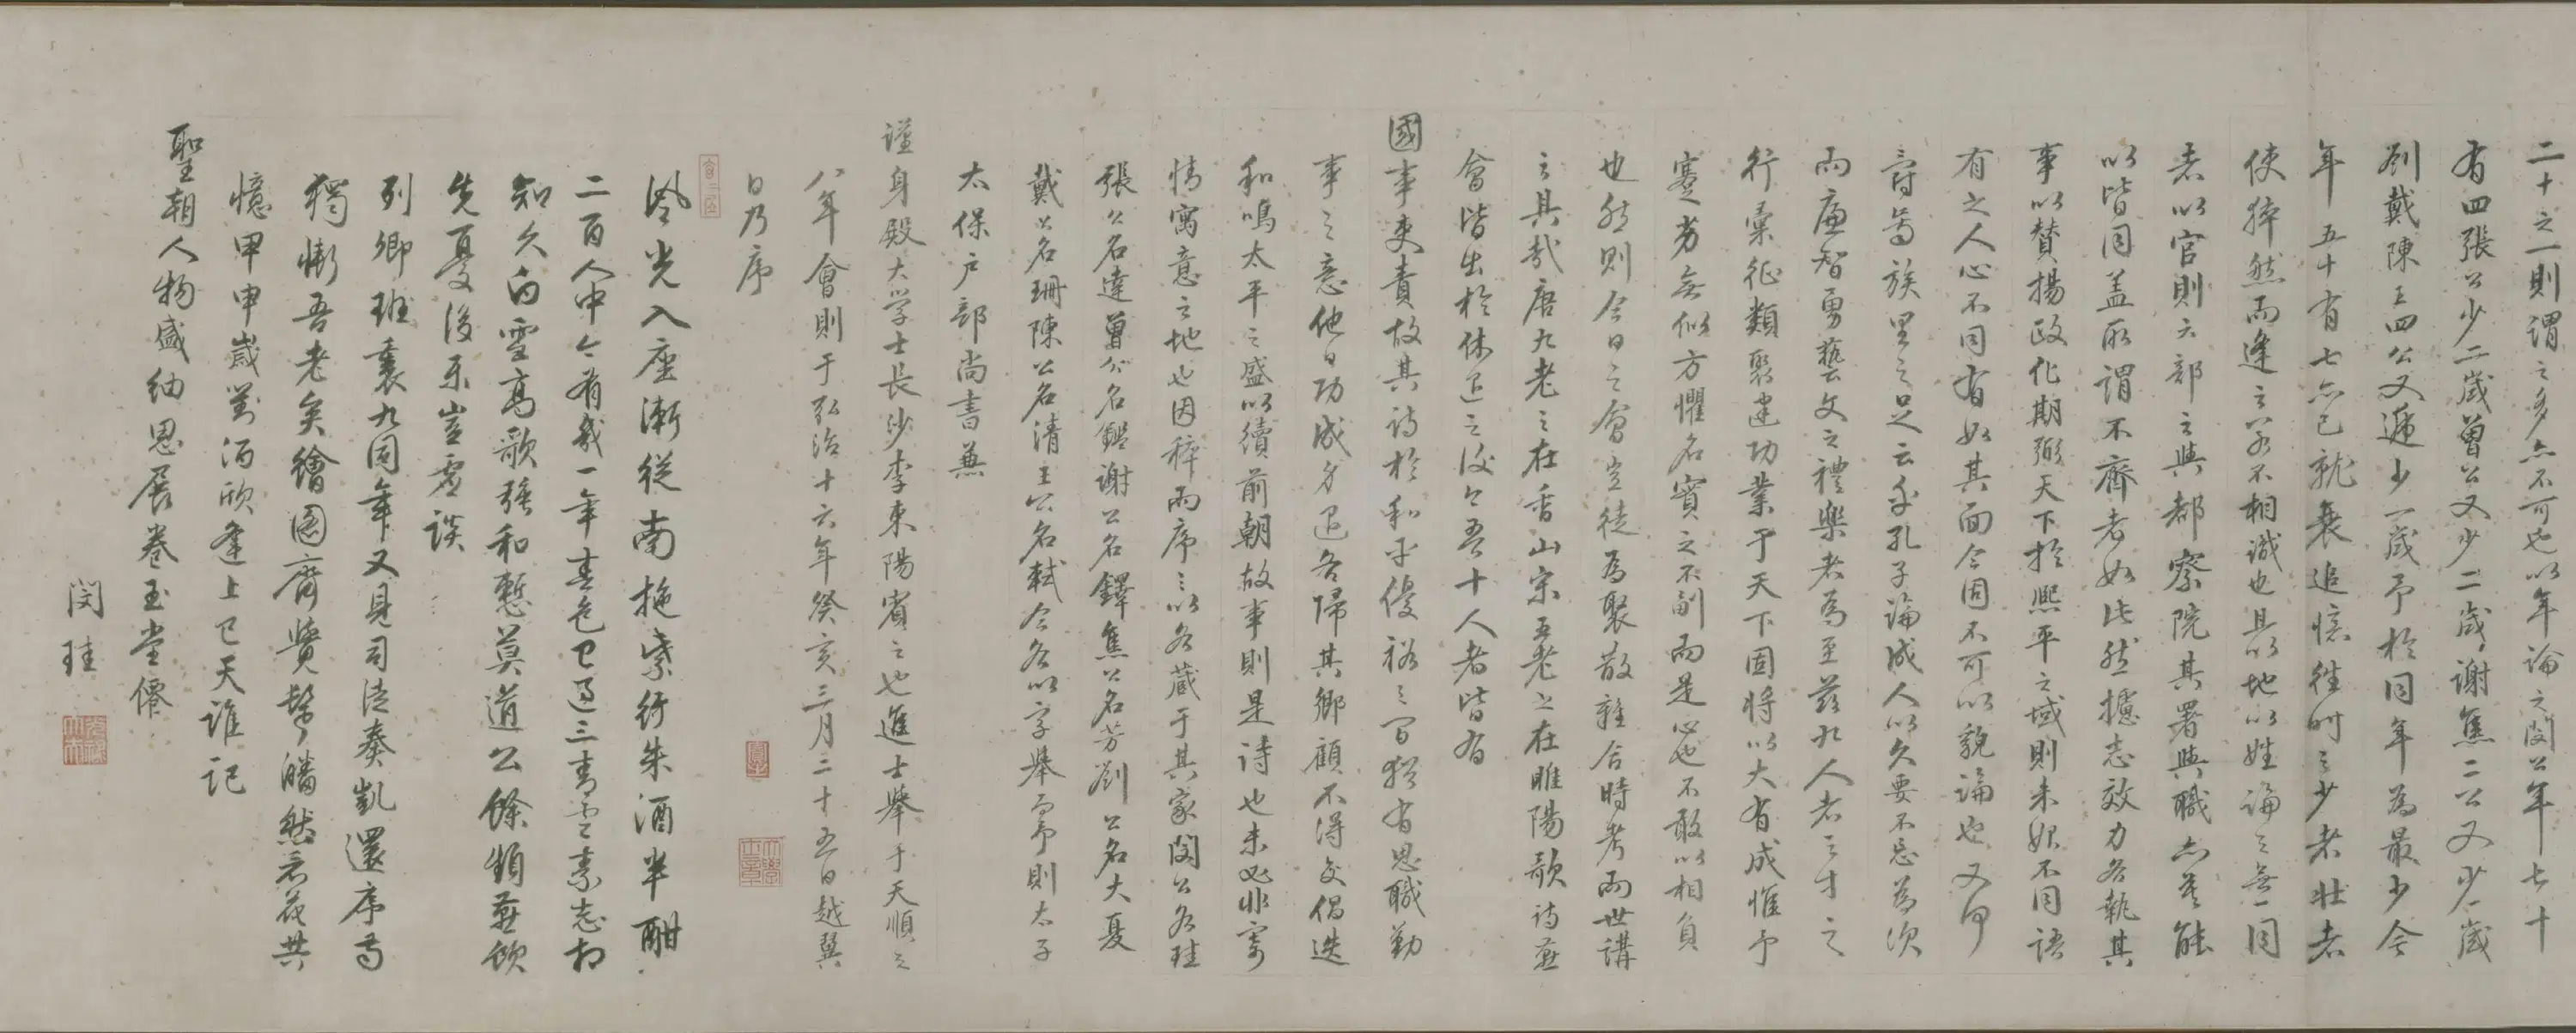 二十之一則謂之多亦不可也以年論之閔公年七十
有四張公少二歲曾公又少二歲謝焦二公又少一歲
劉戴陳王四公又遞少一歲予於同年為最少今
年五十有七亦已就衰追憶往時之少者壯者
使猝然而逢之若不相識也且以地以姓論之無一同
者以官則六部之與都察院其署與職亦莫能
以皆同盖所謂不齊者如此然攄志效力各執其
事以賛揚政化期弼天下於熙平之域則未始不同語
有之人心不同有如其面今固不可以貌論也又何
爵芳族里之足云乎孔子論成人以久要不忘為次
而廉智勇藝文之禮樂者為至茲九人者之才之
行彙征類聚建功業于天下固將以大有成惟予
蹇劣無似方懼名實之不副而是心也不敢以相負
也然則今日之會豈徒為聚散離合時考而世講
之具哉唐九老之在香山宋五老之在睢陽歌詩燕
會皆出於休退之後今吾十人者皆有
國事吏責故其詩於和平優裕之間猶有思職勤
事之意他日功成身退各歸其鄉顧不得交倡迭
和鳴太平之盛以續前朝故事則是詩也未必非寄
情寓意之地也因稡而序之以各藏于其家閔公名珪
張公名達曾公名鑑謝公名鐸焦公名芳劉公名大夏
戴公名珊陳公名清王公名軾今各以字舉予則太子
太保戶部尚書兼
謹身殿大学士長沙李東陽賓之也進士舉于天順之
八年會則于弘治十六年癸亥三月二十五日越翼
日乃序
風光入座漸從南拖紫紆朱酒半酣
二百人中今有幾一年春色已過三青雲素志相
知久白雪高歌強和慙莫道公餘頻燕飲
先憂後樂豈虛談
列卿班裏九同年又見司徒奏凱還序齒
獨慚吾老矣繪圖齊覺鬢皤然看花共
憶甲申歲對酒欣逢上巳天誰記
聖朝人物盛紬思展卷玉堂僊
閔珪